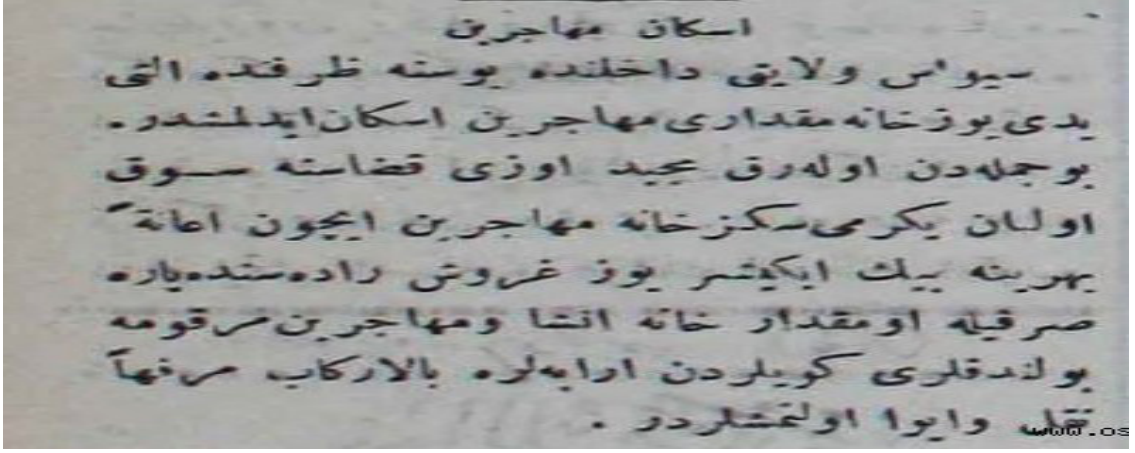 اسكان مهاجرين
سيواس ولايتى داخلنده بو سنه ظرفنده التى
يدى يوز خانه مقدارى مهاجرين اسكان ايدلمشدر .
بو جمله‌دن اوله‌رق مجيد اوزى قضاسنه سوق
اولنان يكرمى سكز خانه مهاجرين ايچون اعانةً
بهرينه بيك ايكيشر يوز غروش راده‌سنده پاره
صرفيله او مقدار خانه انشا و مهاجرين مرقومه
بولندقلرى كويلردن ارابه‌لره بالاركاب مرفهاً
نقل و ايوا اولنمشلردر .
www.os